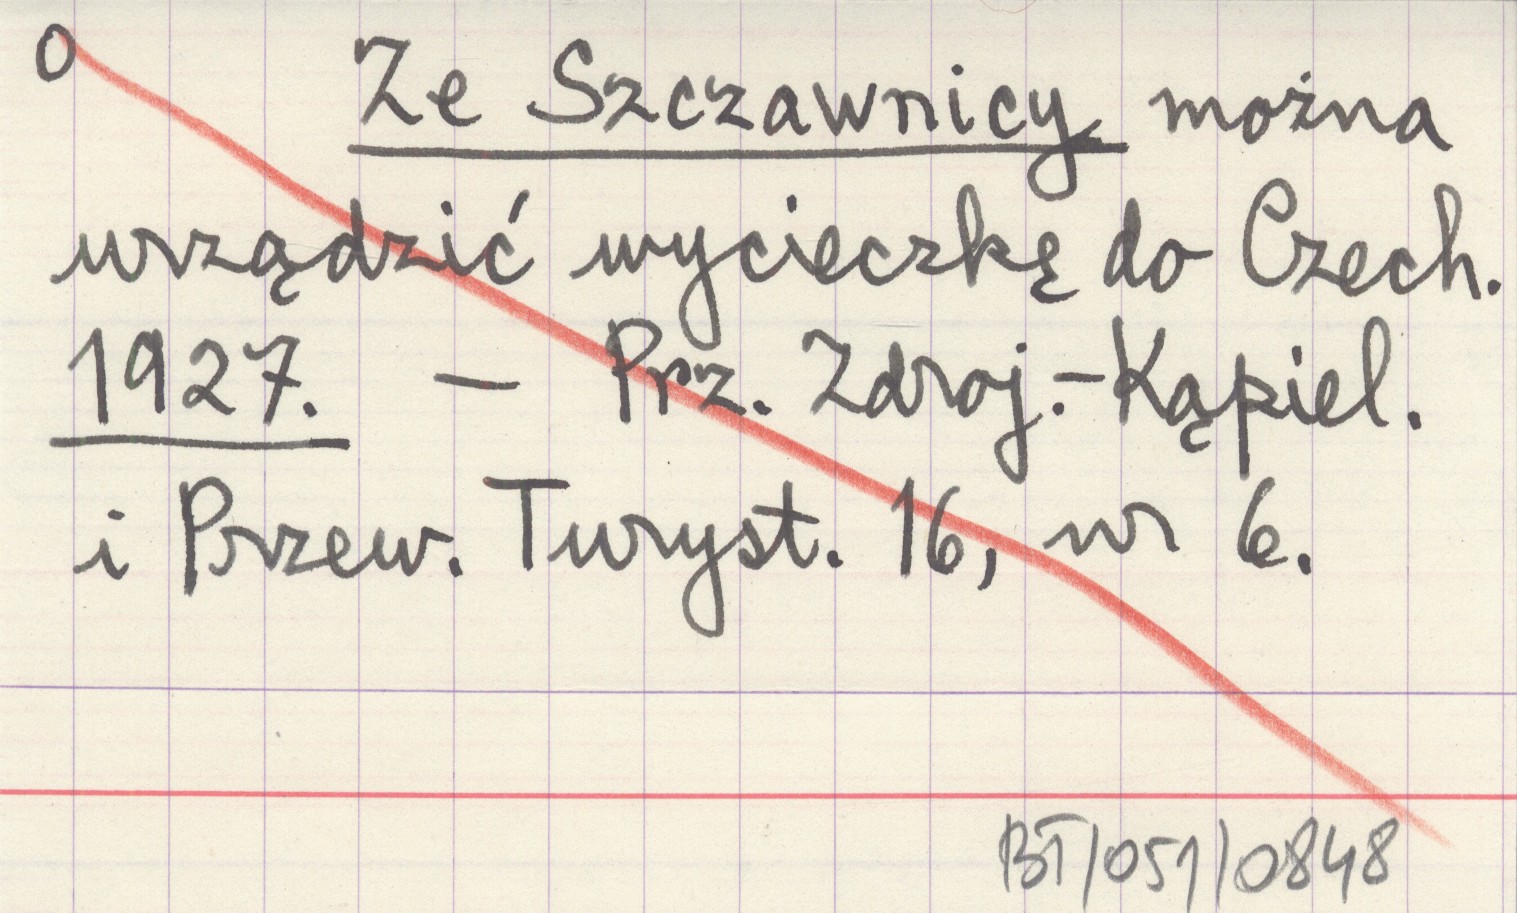 0 Ze Szczawnicy można
urządzić wycieczkę do Czech.
1927. — Prz. Zdroj.-Kąpiel.
i Przew. Turyst. 16, nr 6.
BT/051/0848